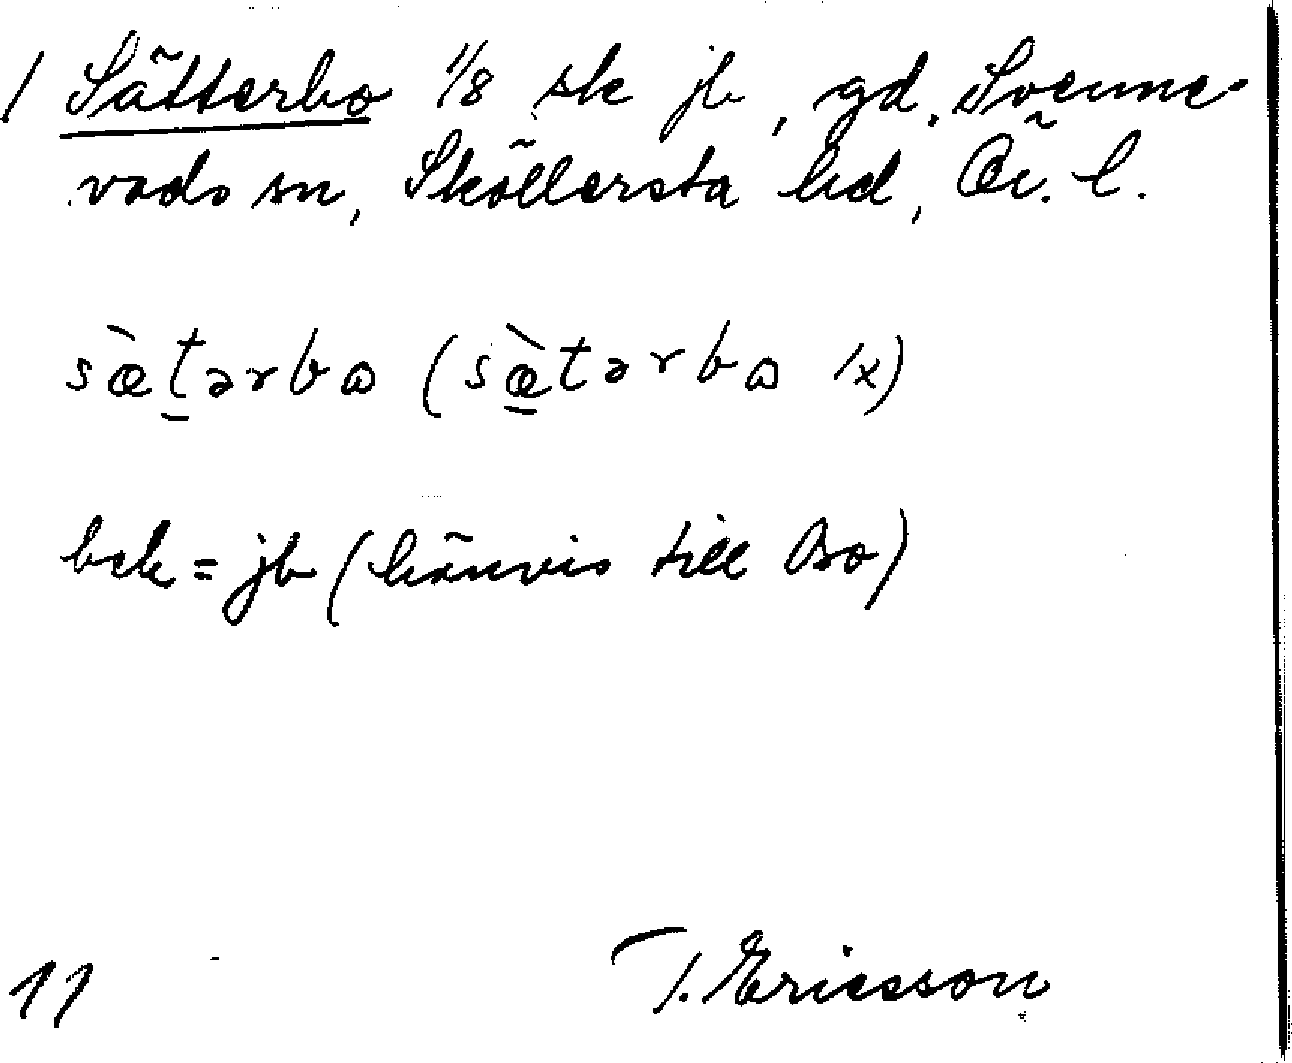 / Sätterbo 1/8 sk jb, gd. Svenne-
vads sn, Sköllersta hd, Ör. l.
sæ̀t̠ərbɷ (sæ̠̀tərbɷ 1x)
bek = jb (hänvis till Bo)
11 T. Ericsson